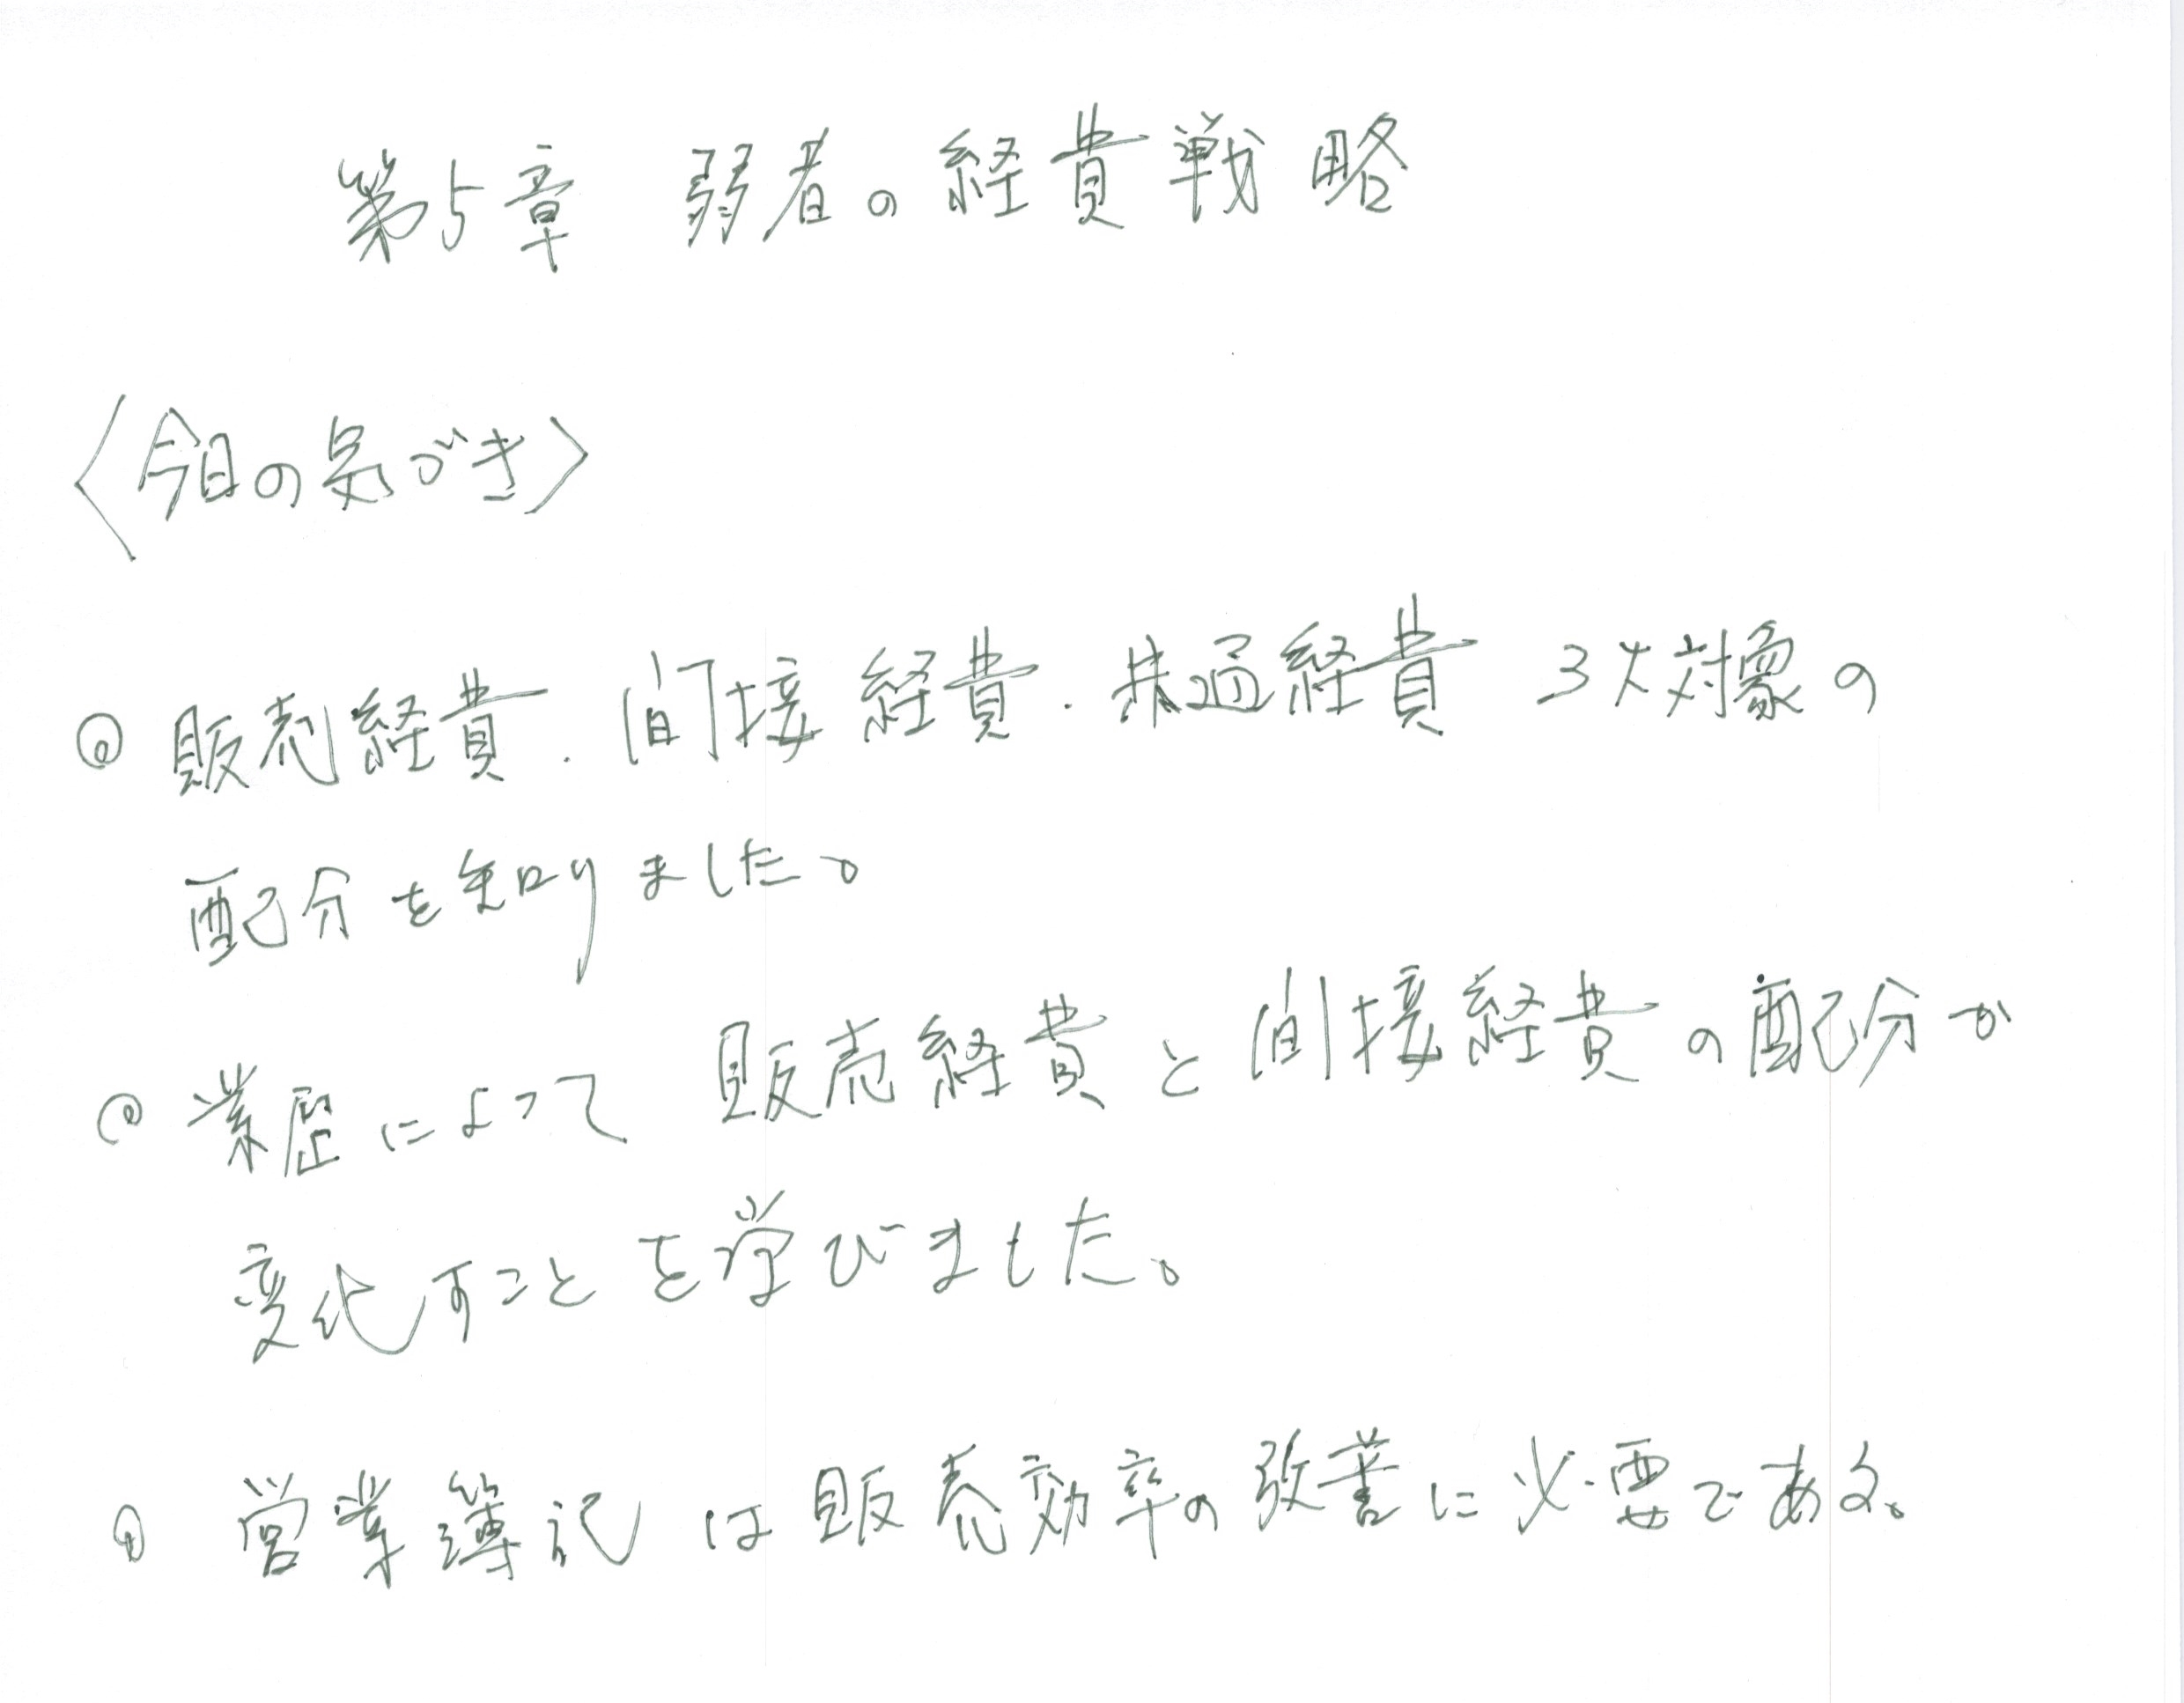 第5章 弱者の経費戦略
〈今日の気づき〉
◎ 販売経費・間接経費・共通経費 3大対象の
配分を知りました。
◎ 業歴によって 販売経費と間接経費の配分が
変化すことを学びました。
◎ 営業簿記は販売効率の改善に必要である。